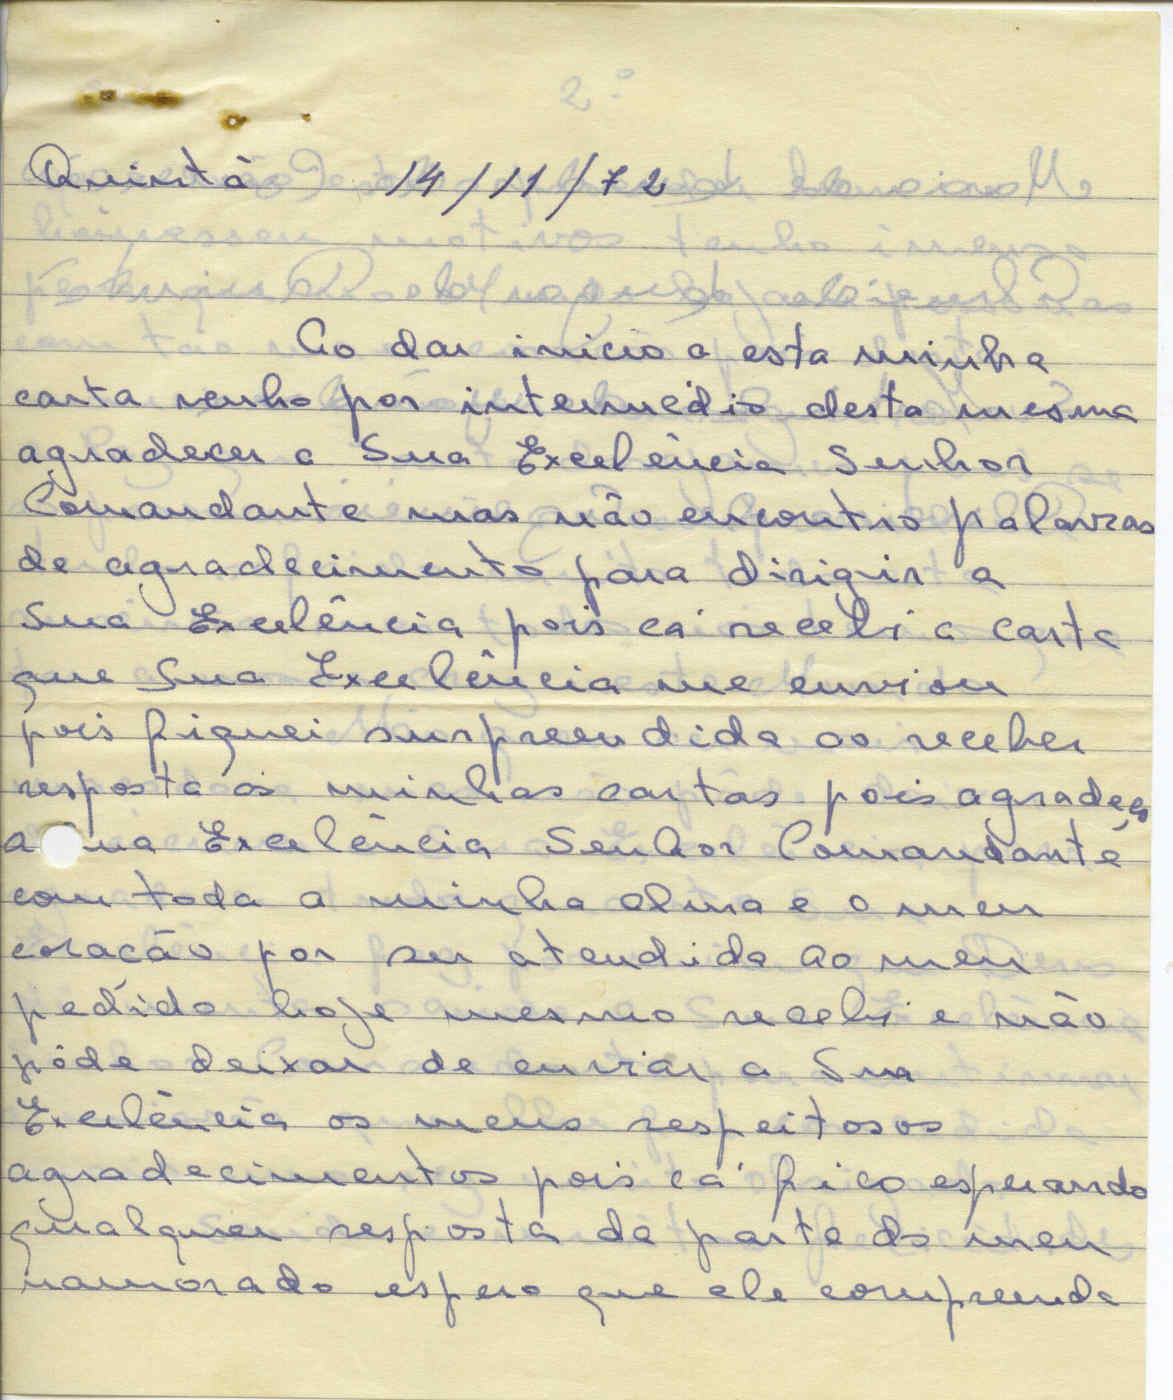 Quintã 14/11/72
Ao dar inicio a esta minha
carta venho por intermédio desta mesma
agradecer a Sua Excelência Senhor
Comandante mas não encontro palavras
de agradecimento para dirigir a
Sua Excelência pois cá recebi a carta
que Sua Excelência me enviou
pois fiquei surpreendida ao receber
resposta ás minhas cartas pois agradeço
a ua Excelência Senhor Comandante
com toda a minha alma e o meu
coração por ser atendida ao meu
pedido hoje mesmo recebi e não
póde deixar de enviar a Sua
Excelência os meus respeitosos
agradecimentos pois cá fico esperando
qualquer resposta da parte do meu
namorado espero que ele compreenda